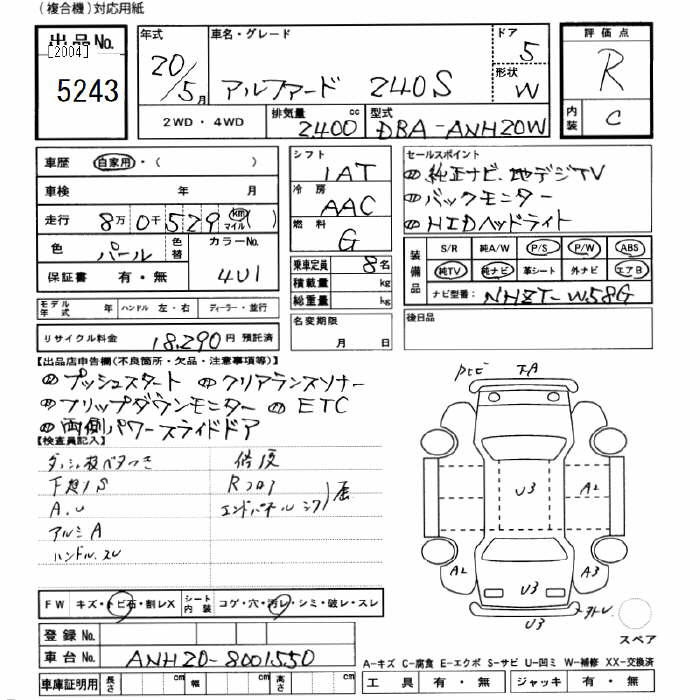 (複合機)対応用紙
出品No.
[2004]
5243
年式
20/5月
車名・グレード
アルファード 240S
ドア
5
形状
W
2WD・4WD
排気量
2400 cc
型式
DBA-ANH20W
評価点
R
内装
C
車歴 自家用・( )
車検 年 月
走行 8万0千529 km マイル ( )
色 パール 色替 カラーNo. 4U1
保証書 有・無
シフト
IAT
冷房
AAC
燃料
G
乗車定員 8名
積載量 kg
総重量 kg
セールスポイント
純正ナビ、地デジTV
バックモニター
HIDヘッドライト
装備品
S/R 純A/W P/S P/W ABS
純TV 純ナビ 革シート 外ナビ エアB
ナビ型番: NHZT-W58G
モデル年式 年 ハンドル 左・右 ディーラー・並行
名変期限
月 日
後日品
リサイクル料金 18,290円 預託済
【出品店申告欄(不良箇所・欠品・注意事項等)】
プッシュスタート クリアランスソナー
フリップダウンモニター ETC
両側パワースライドドア
【検査員記入】
修復
A.U
アルミA
エンドパネル
F.A
U3
A2
A2
A3
U3
U3
スペア
FW キズ・トビ石・割レX シート内装 コゲ・穴・汚レ・シミ・破レ・スレ
登録No.
車台No. ANH20-8001550
車庫証明用 長さ cm 幅 cm 高さ cm
A-キズ C-腐食 E-エクボ S-サビ U-凹ミ W-補修 XX-交換済
工具 有・無 ジャッキ 有・無